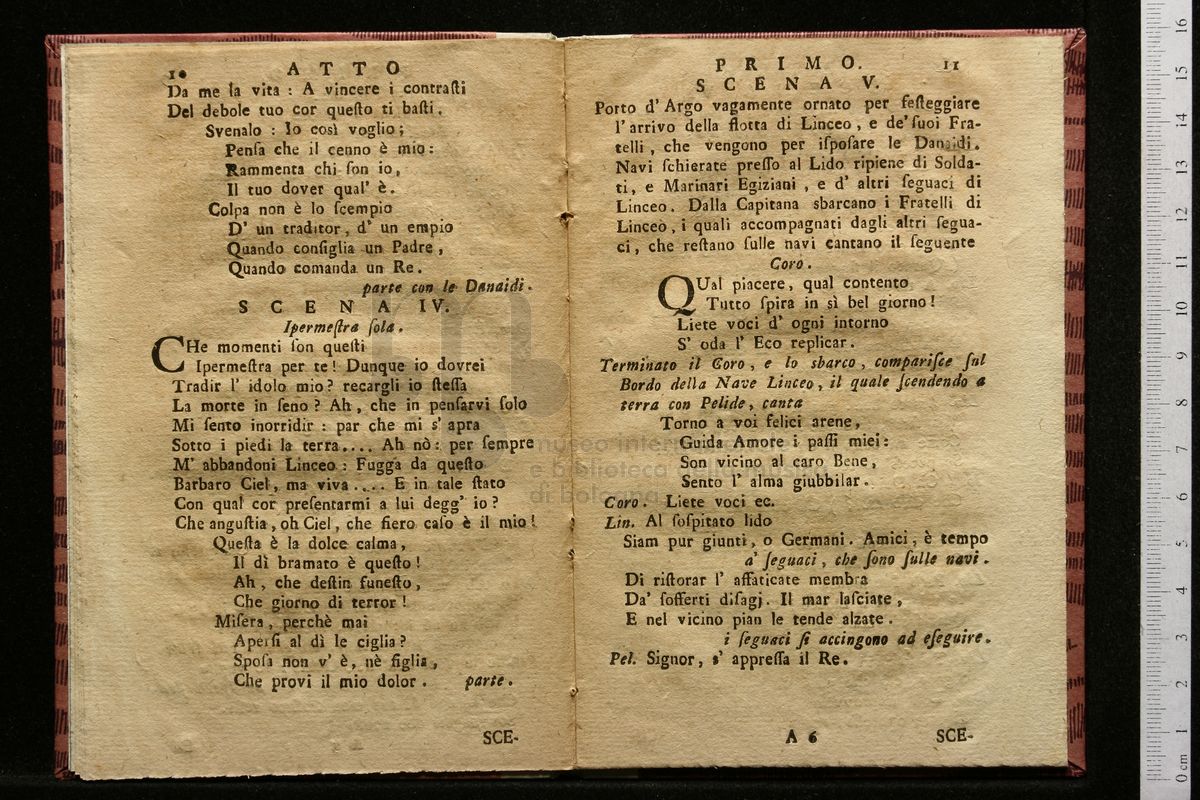 10 ATTO
Da me la vita : A vincere i contraſti
Del debole tuo cor queſto ti baſti.
Svenalo : Io così voglio;
Penſa che il cenno è mio:
Rammenta chi ſon io,
Il tuo dover qual' è.
Colpa non è lo ſcempio
D' un traditor, d' un empio
Quando conſiglia un Padre,
Quando comanda un Re.
parte con le Danaidi.
SCENA IV.
Ipermeſtra ſola.
CHe momenti ſon queſti
Ipermeſtra per te! Dunque io dovrei
Tradir l' idolo mio? recargli io ſteſſa
La morte in ſeno? Ah, che in penſarvi ſolo
Mi ſento inorridir : par che mi s' apra
Sotto i piedi la terra.... Ah nò: per ſempre
M' abbandoni Linceo : Fugga da queſto
Barbaro Ciel, ma viva.... E in tale ſtato
Con qual cor preſentarmi a lui degg' io?
Che anguſtia, oh Ciel, che fiero caſo è il mio!
Queſta è la dolce calma,
Il dì bramato è queſto!
Ah, che deſtin funeſto,
Che giorno di terror!
Miſera, perchè mai
Aperſi al dì le ciglia?
Spoſa non v' è, nè figlia,
Che provi il mio dolor. parte.
SCE-
PRIMO. 11
SCENA V.
Porto d' Argo vagamente ornato per feſteggiare
l' arrivo della flotta di Linceo, e de' ſuoi Fra-
telli, che vengono per iſpoſare le Danaidi.
Navi ſchierate preſſo al Lido ripiene di Solda-
ti, e Marinari Egiziani, e d' altri ſeguaci di
Linceo. Dalla Capitana sbarcano i Fratelli di
Linceo, i quali accompagnati dagli altri ſegua-
ci, che reſtano ſulle navi cantano il ſeguente
Coro.
QUal piacere, qual contento
Tutto ſpira in sì bel giorno!
Liete voci d' ogni intorno
S' oda l' Eco replicar.
Terminato il Coro, e lo sbarco, compariſce ſul
Bordo della Nave Linceo, il quale ſcendendo a
terra con Pelide, canta
Torno a voi felici arene,
Guida Amore i paſſi miei:
Son vicino al caro Bene,
Sento l' alma giubbilar.
Coro. Liete voci ec.
Lin. Al ſoſpitato lido
Siam pur giunti, o Germani. Amici, è tempo
a' ſeguaci, che ſono ſulle navi.
Di riſtorar l' affaticate membra
Da' ſofferti diſagj. Il mar laſciate,
E nel vicino pian le tende alzate.
i ſeguaci ſi accingono ad eſeguire.
Pel. Signor, s' appreſſa il Re.
A 6 SCE-
museo internazionale
e biblioteca della musica
di bologna
0 cm 1 2 3 4 5 6 7 8 9 10 11 12 13 14 15 16